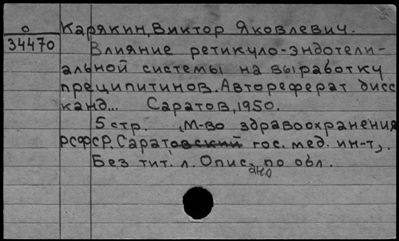 о
34470
Карякин, Виктор Яковлевич.
Влияние ретикуло-эндотели-
альной системы на выработку
преципитинов. Автореферат дисс
канд... Саратов, 1950.
5 стр. (М-во здравоохранения
РСФСР. Саратовский гос. мед. ин-т).
Без тит. л. Опис. по обл.